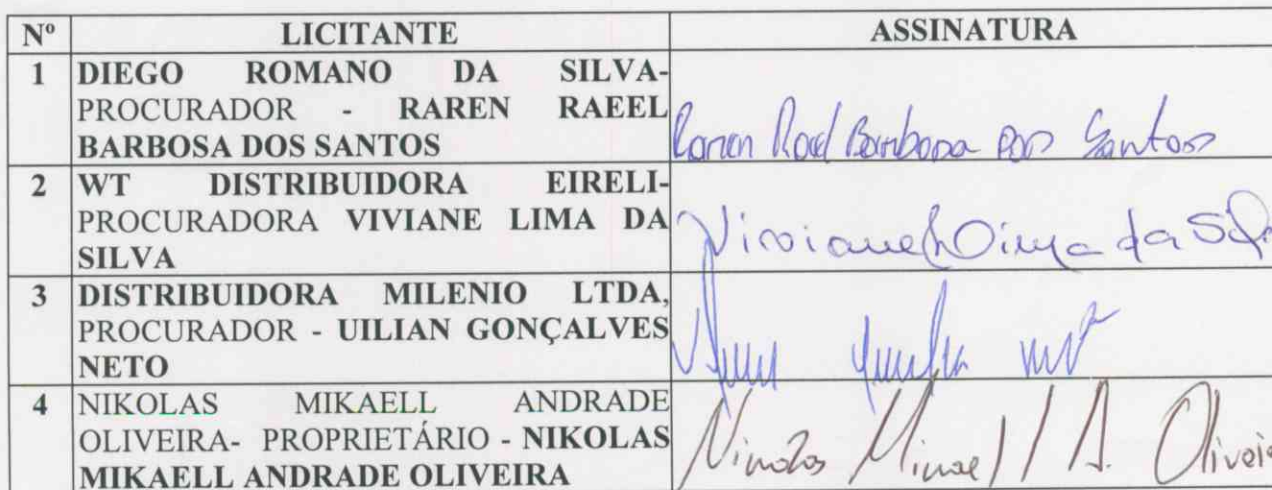 Nº LICITANTE ASSINATURA
1 DIEGO ROMANO DA SILVA-
PROCURADOR - RAREN RAEEL
BARBOSA DOS SANTOS
Raren Rael Barbosa dos Santos
2 WT DISTRIBUIDORA EIRELI-
PROCURADORA VIVIANE LIMA DA
SILVA
Viviane Lima da Silva
3 DISTRIBUIDORA MILENIO LTDA,
PROCURADOR - UILIAN GONÇALVES
NETO
4 NIKOLAS MIKAELL ANDRADE
OLIVEIRA- PROPRIETÁRIO - NIKOLAS
MIKAELL ANDRADE OLIVEIRA
Nikolas Mikaell A. Oliveira